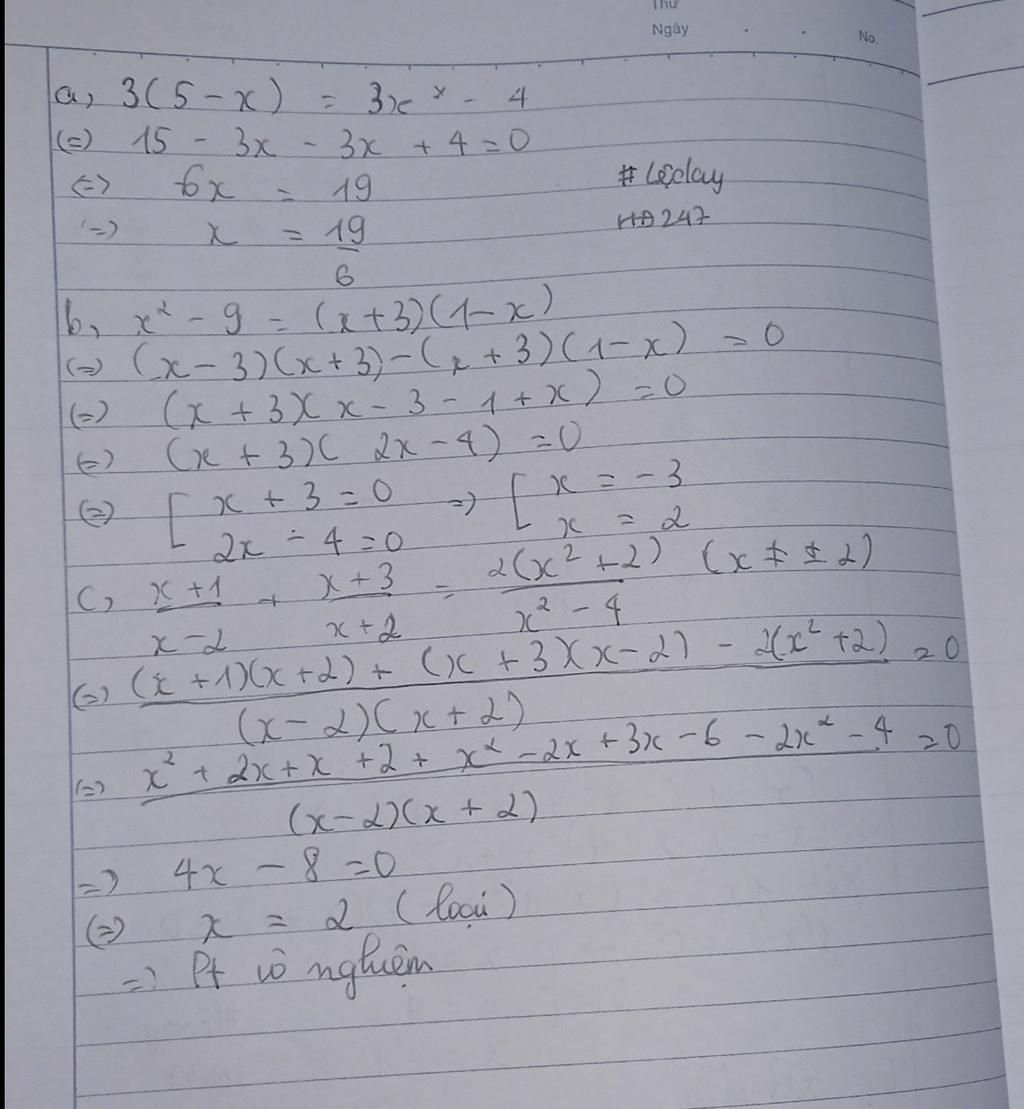 Thứ
Ngày . . No.
a, 3(5 - x) = 3x - 4
(=) 15 - 3x - 3x + 4 = 0
<=> 6x = 19
=> x = 19/6
#Lộclay
HĐ247
b, x² - 9 = (x+3)(1-x)
(=) (x-3)(x+3) - (x+3)(1-x) = 0
(=) (x+3)(x-3-1+x) = 0
(=) (x+3)(2x-4) = 0
(=) [ x+3 = 0 => [ x = -3
2x - 4 = 0 x = 2
c, (x+1)/(x-2) + (x+3)/(x+2) = 2(x²+2)/(x²-4) (x ≠ ±2)
(=) ((x+1)(x+2) + (x+3)(x-2) - 2(x²+2))/((x-2)(x+2)) = 0
(=) (x² + 2x + x + 2 + x² - 2x + 3x - 6 - 2x² - 4)/((x-2)(x+2)) = 0
=) 4x - 8 = 0
(=) x = 2 (loại)
=> Pt vô nghiệm